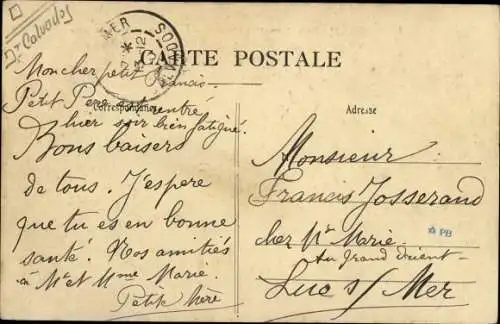 Dt Calvados
MER
CALVADOS
CARTE POSTALE
Correspondance
Adresse
Mon cher petit Francis.
Petit Père est rentré
hier soir bien fatigué.
Bons baisers
de tous. J'espere
que tu es en bonne
santé. Nos amitiés
à Mr et Mme Marie.
Petite Mère
Monsieur
Francis Josserand
chez Mr Marie.
Au Grand Orient
Luc s/ Mer
PB